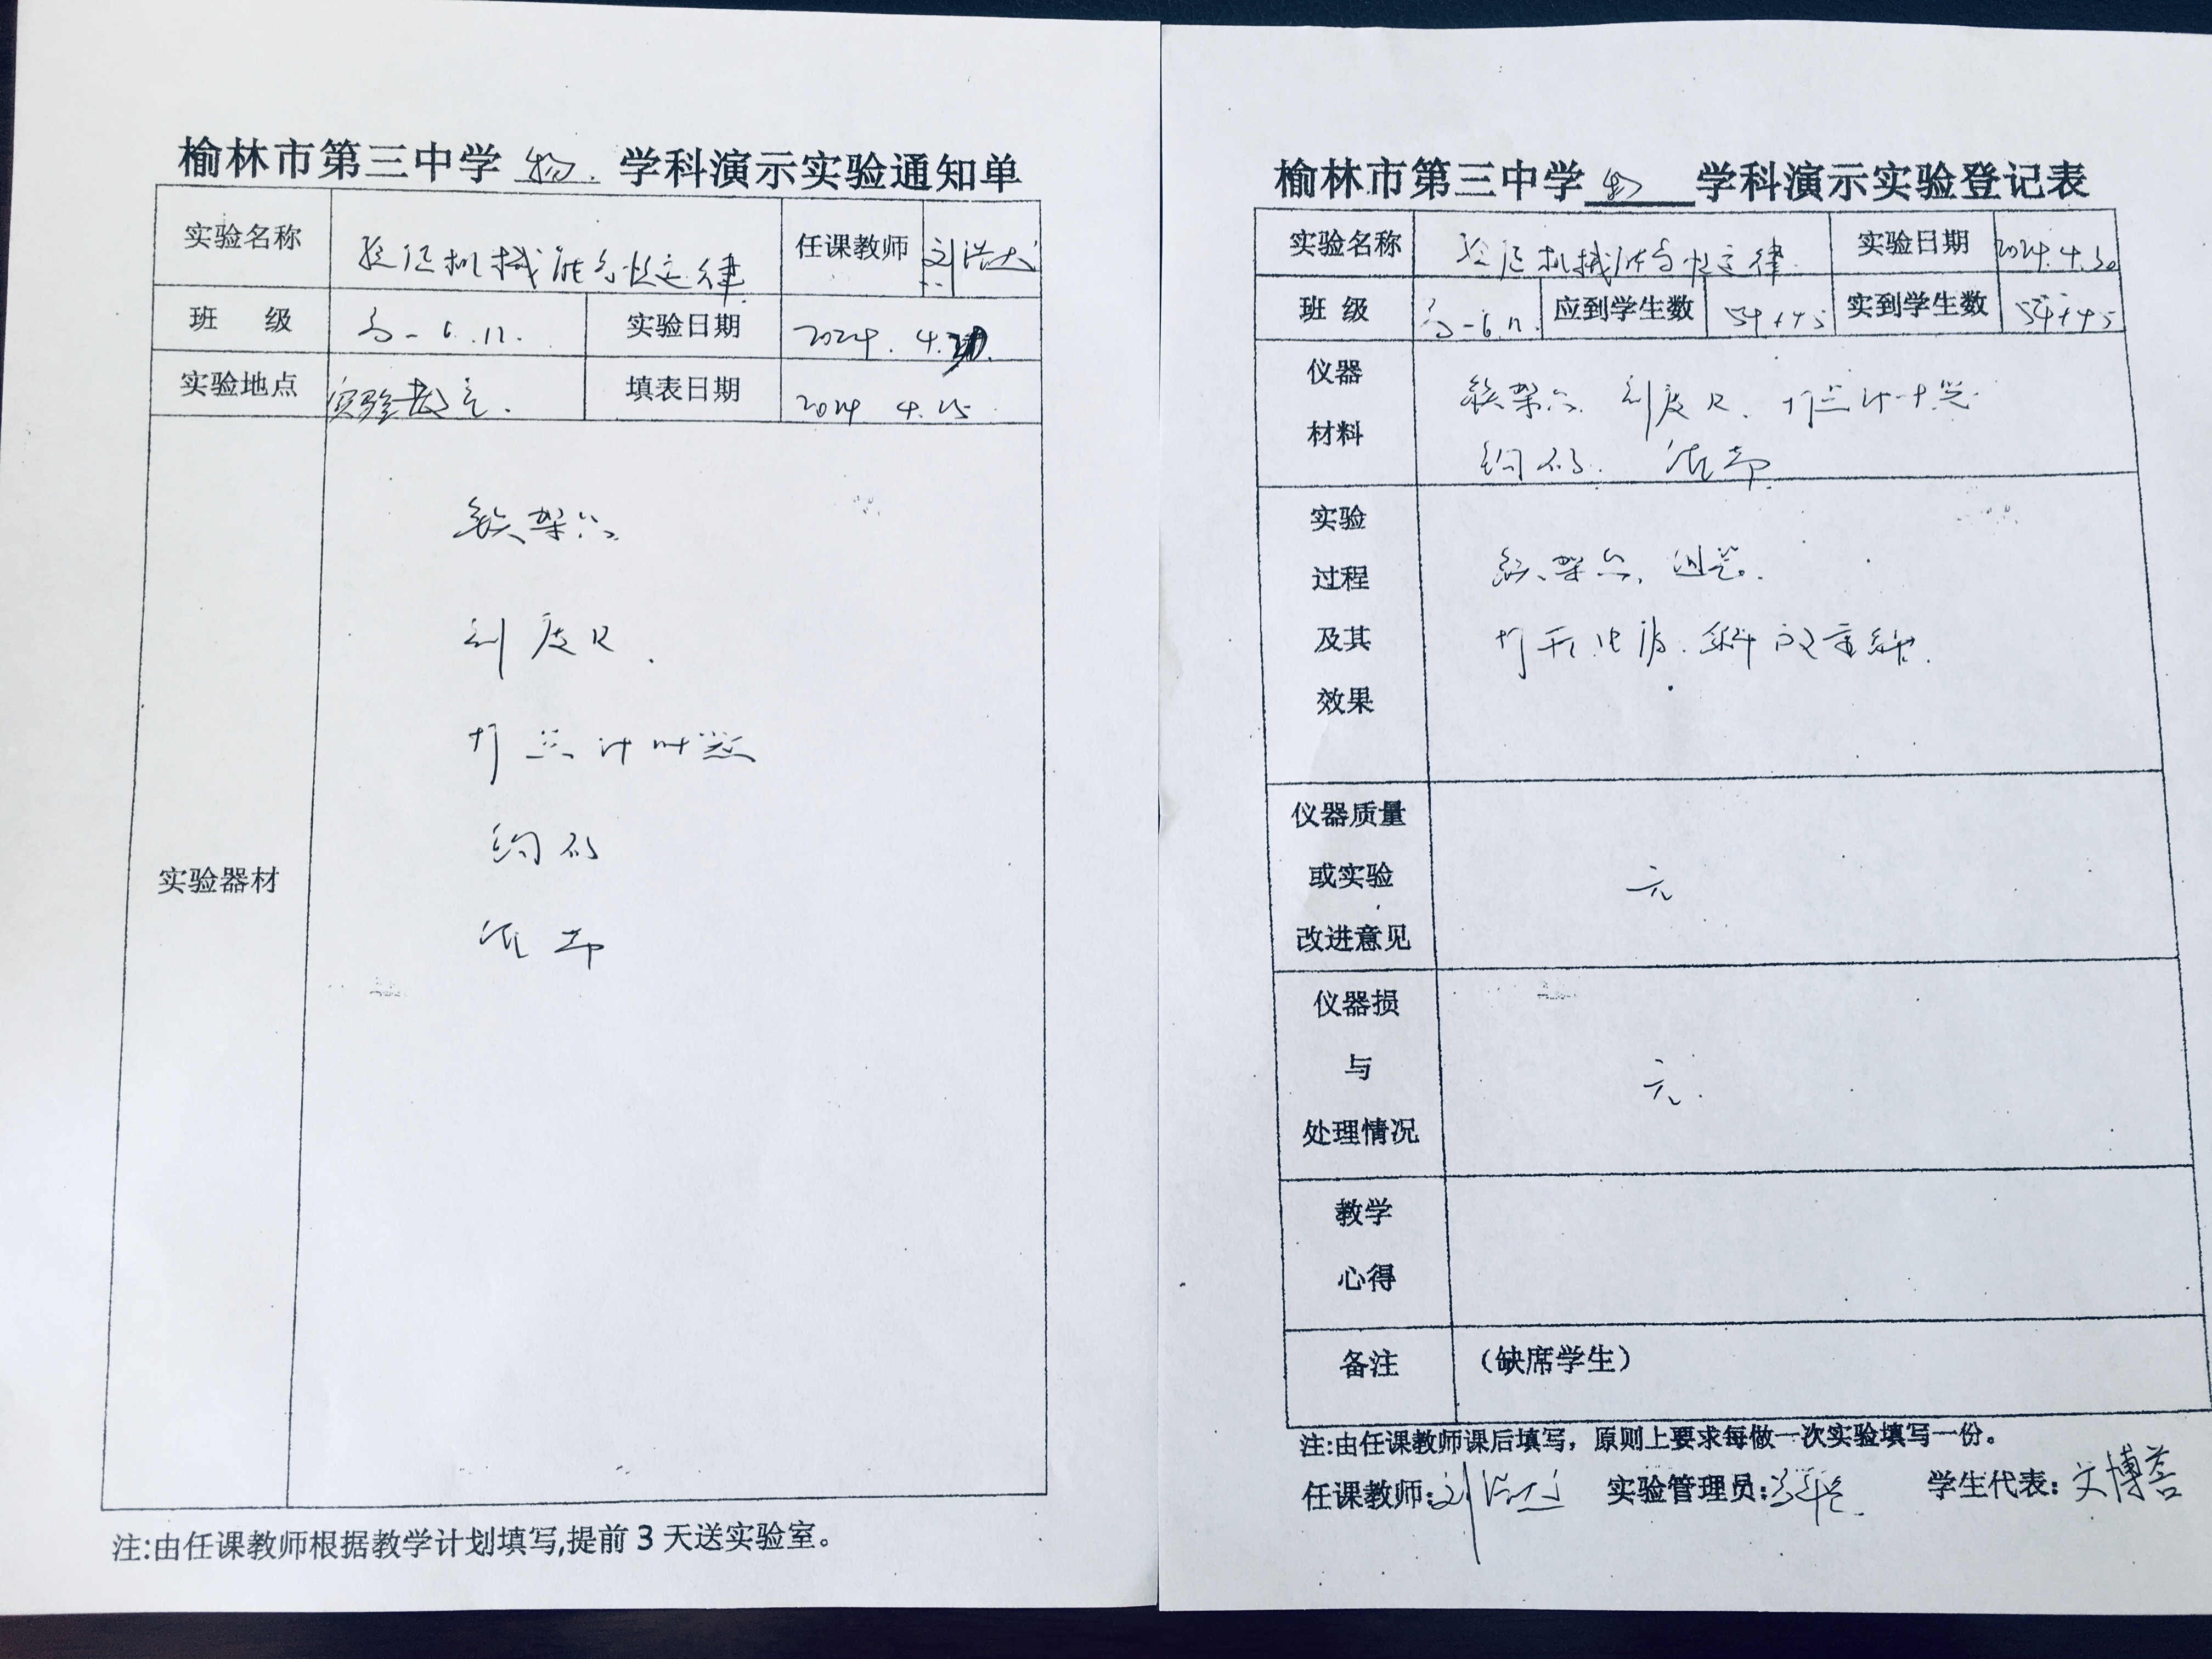 榆林市第三中学 物 学科演示实验通知单
实验名称 验证机械能守恒定律 任课教师 刘浩
班 级 高一6.12. 实验日期 2024. 4.30.
实验地点 实验教室. 填表日期 2024 4.25.
实验器材
铁架台
刻度尺.
打点计时器
钩码
纸带
注:由任课教师根据教学计划填写,提前3天送实验室。
榆林市第三中学 物 学科演示实验登记表
实验名称 验证机械能守恒定律. 实验日期 2024.4.30
班 级 高一6.12. 应到学生数 54+45 实到学生数 54+45
仪器
材料
铁架台. 刻度尺. 打点计时器.
钩码. 纸带.
实验
过程
及其
效果
铁架台, 组装.
打开电源. 释放重锤.
仪器质量
或实验
改进意见
无
仪器损
与
处理情况
无.
教学
心得
备注 (缺席学生)
注:由任课教师课后填写，原则上要求每做一次实验填写一份。
任课教师: 刘浩 实验管理员: 学生代表: 文博荟